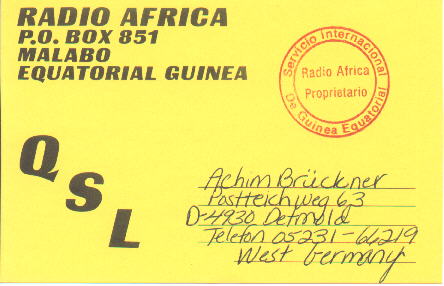 RADIO AFRICA
P.O. BOX 851
MALABO
EQUATORIAL GUINEA
Servicio Internacional
Radio Africa
Proprietario
De Guinea Equatorial
QSL
Achim Brückner
Postteichweg 63
D-4930 Detmold
Telefon 05231-66219
West Germany